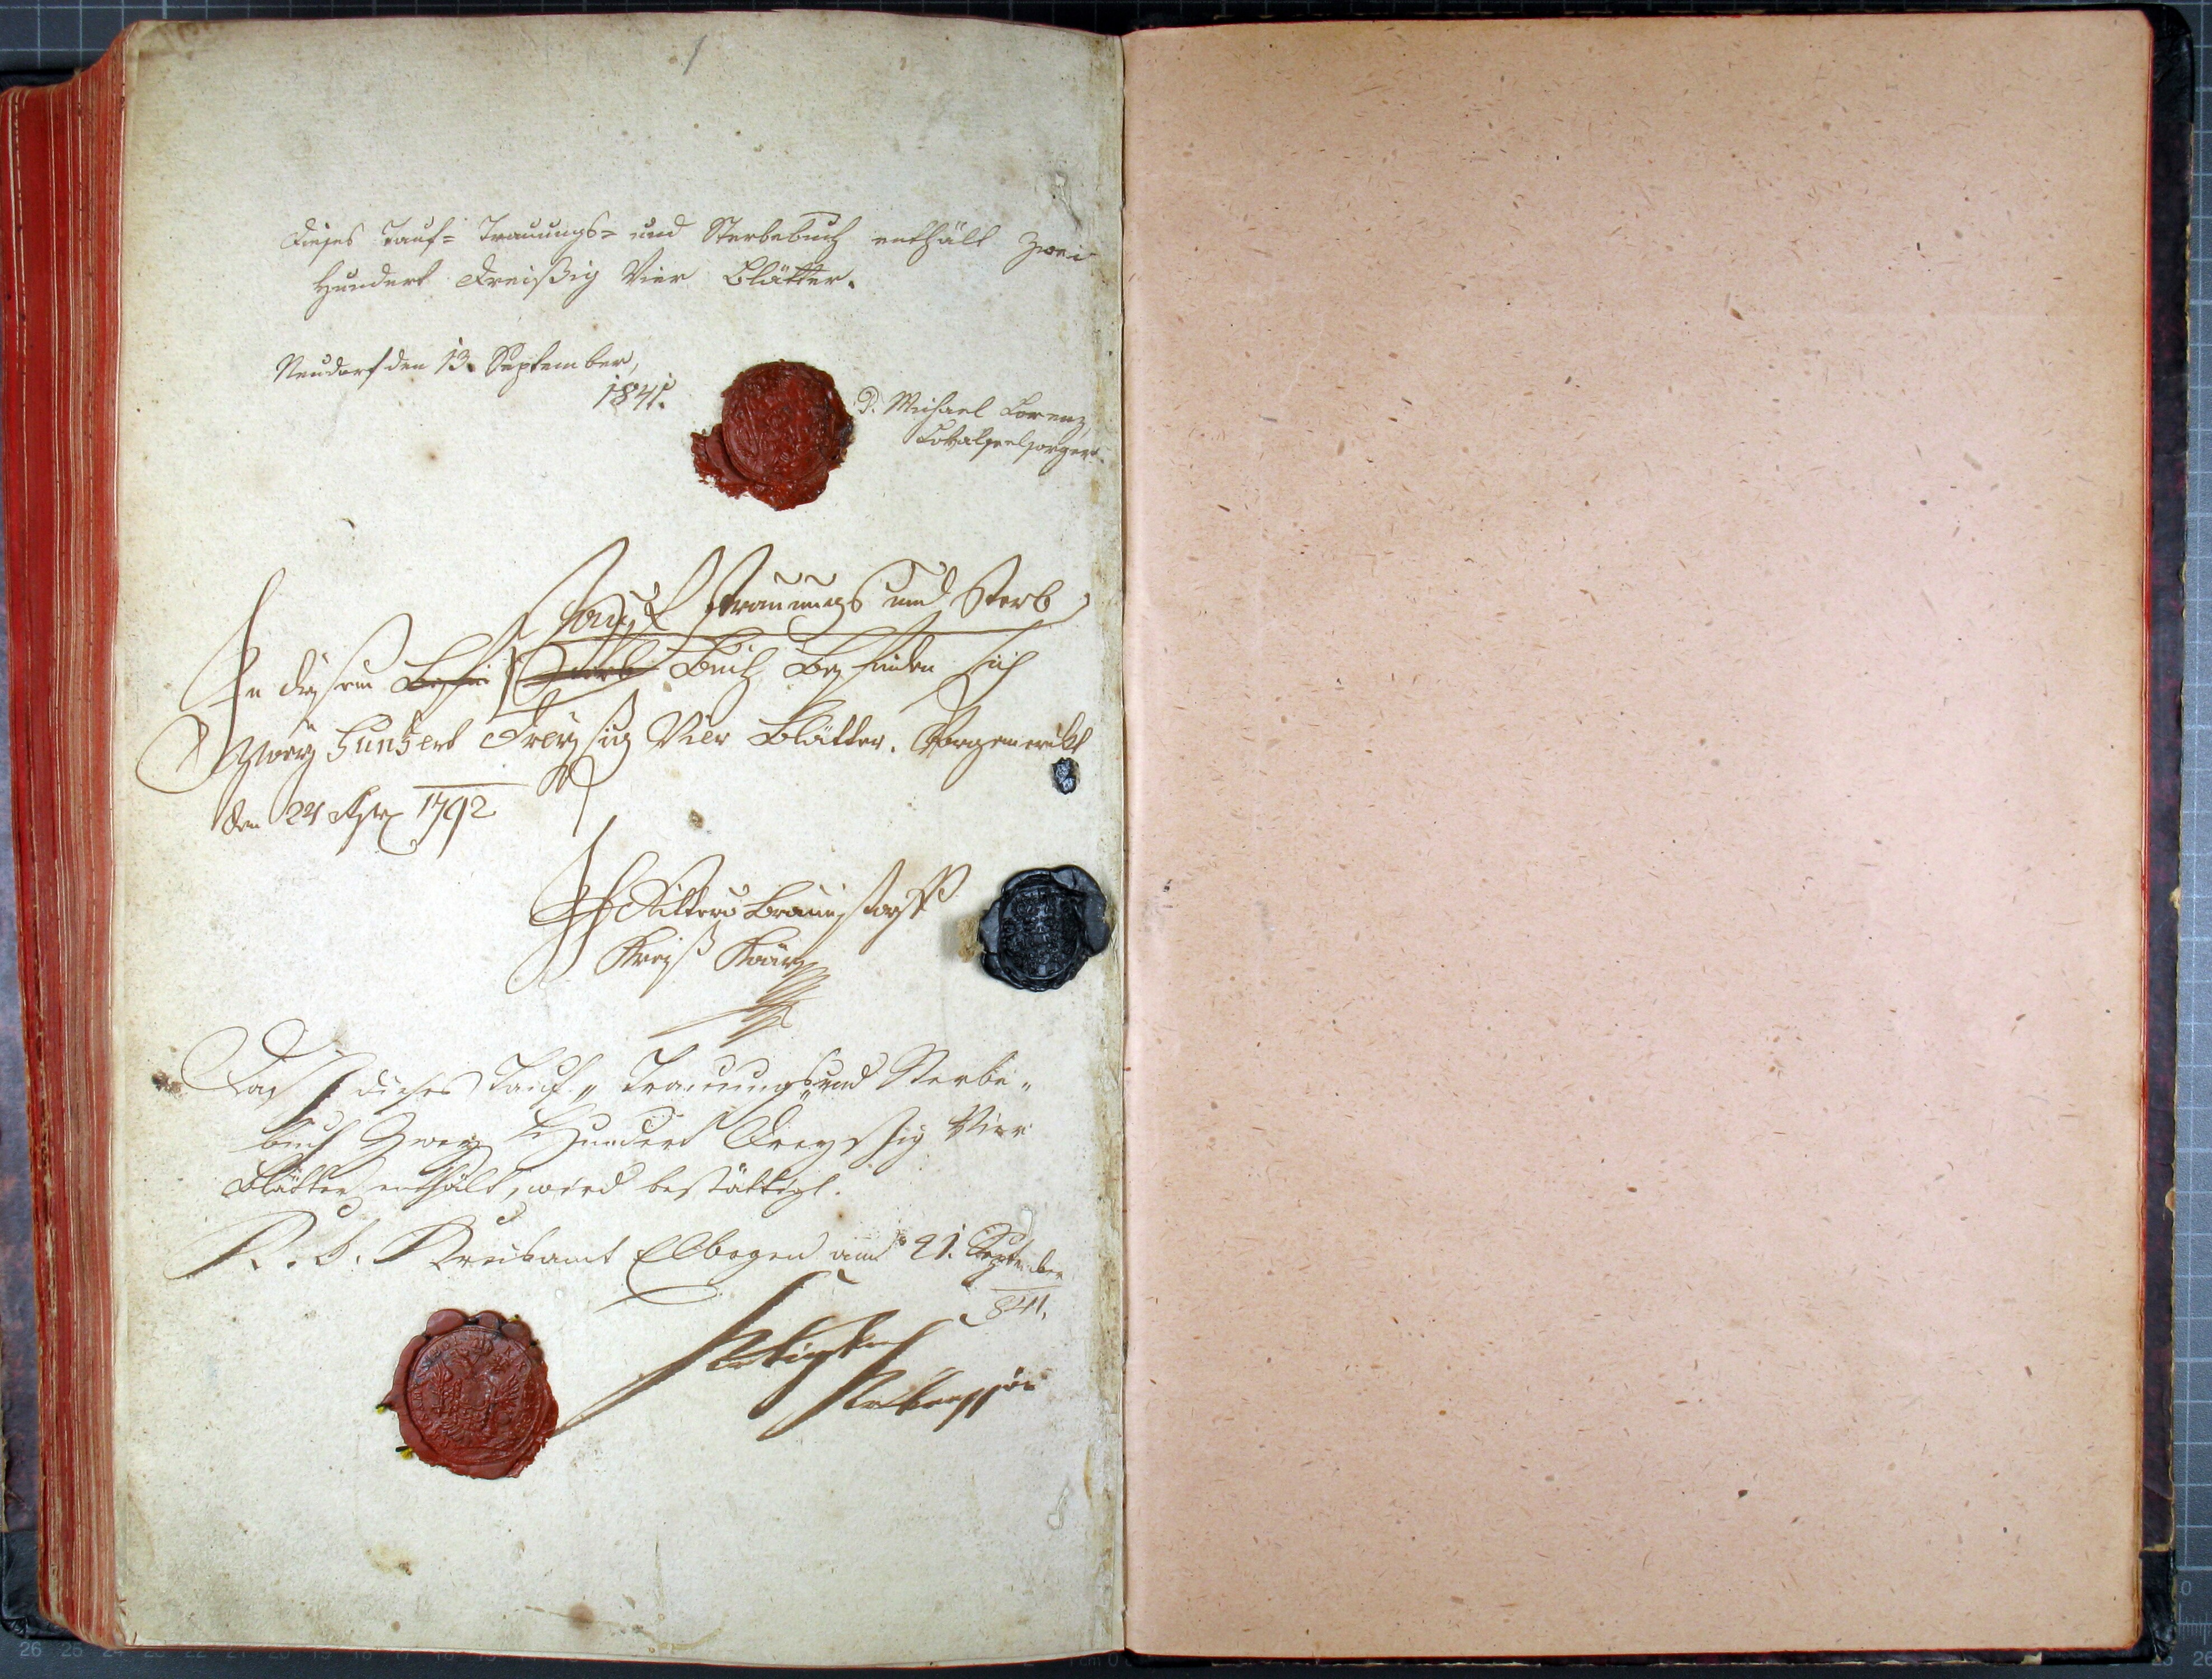 Dieses Tauf= Trauungs= und Sterbebuch enthält Zwei
Hundert Dreißig Vier Blätter.
Neudorf den 13. September,
1841.
P. Michael Lorenz,
Lokalseelsorger.
Tauf Trauungs und Sterb
In diesem Buch befinden sich
Zwey Hundert Dreyssig Vier Blätter. Vorgemerkt
den 24 1792
Kreiß
Daß dieses Tauf„ Trauungs„ und Sterbe„
buch Zwey Hundert Dreyssig Vier
Blätter enthält, wird bestättigt.
K. K. Kreisamt Elbogen am 21. September
841.